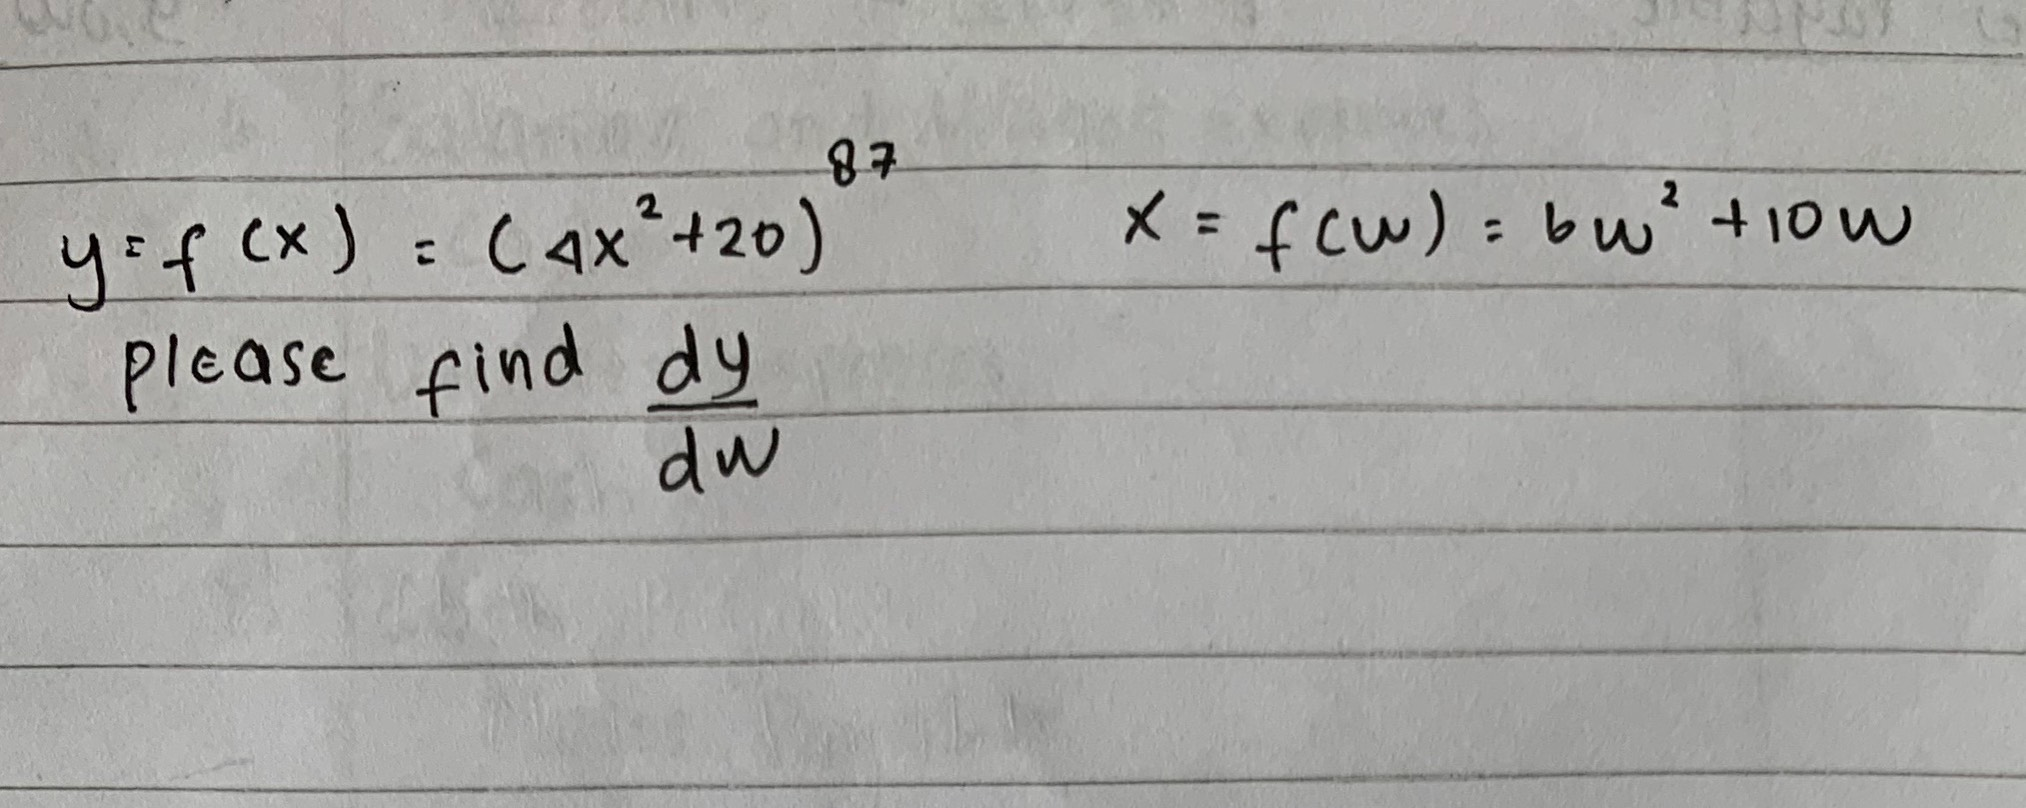 y = f(x) = (4x²+20)⁸⁷ x = f(w) = 6w² +10w
please find dy/dw